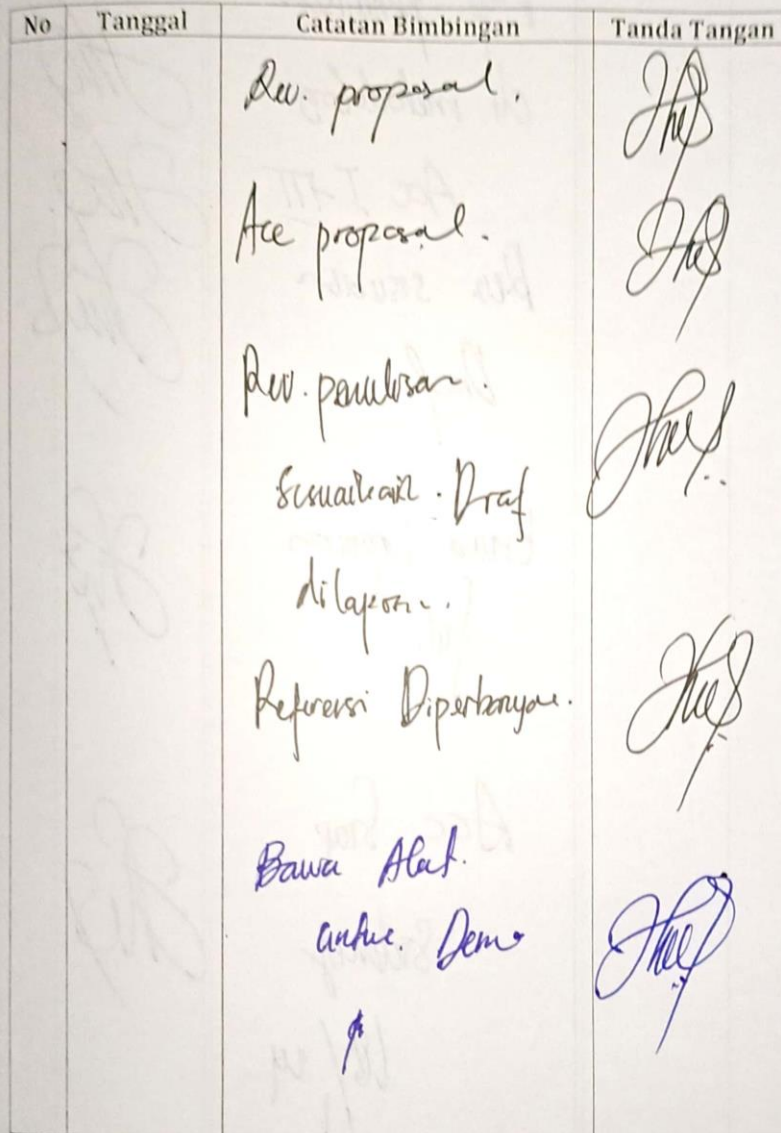 No Tanggal Catatan Bimbingan Tanda Tangan
Rev. proposal.
Acc proposal.
Rev. penulisan.
Sesuaikan. Draf
dilaporan.
Referensi Diperbanyak.
Bawa Alat.
untuk. Demo